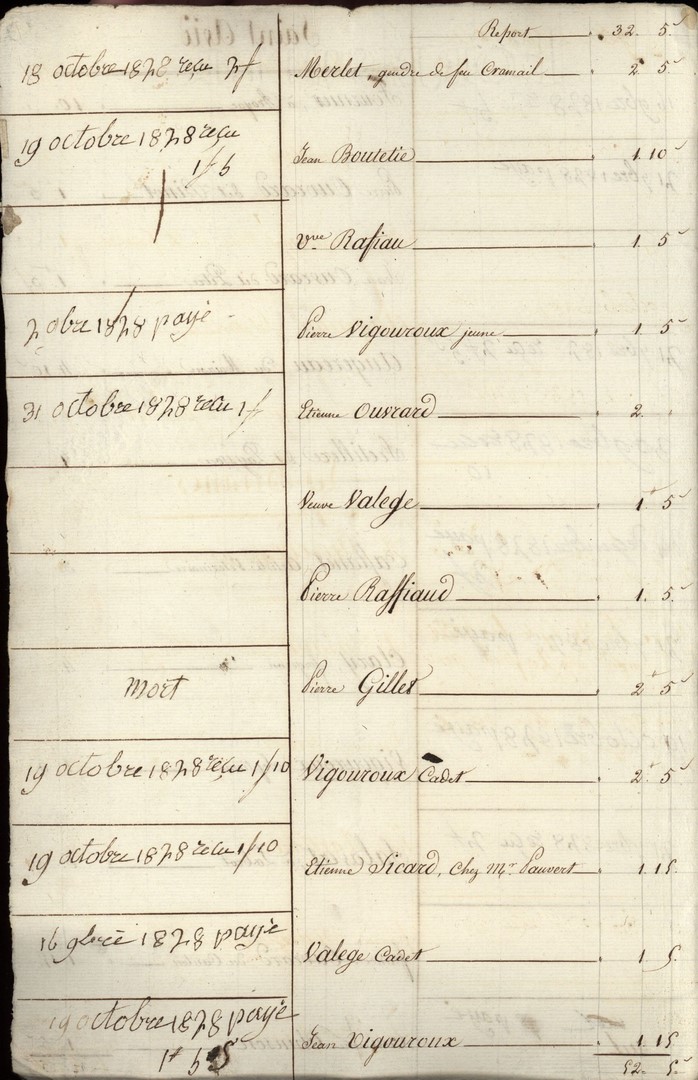 Report 32. 5.
18 octobre 1828 reçu 2f Merlet, gendre de feu Cramail 2. 5
19 octobre 1828 reçu
1f 5 Jean Boutetie 1. 10
vve Rafiau 1. 5
obre 1828 payé Pierre Vigouroux jeune 1. 5
31 octobre 1828 reçu 1f Etienne Ouvrard 2.
Veuve Valege 1. 5
Pierre Raffiaud 1. 5
mort Pierre Gillet 2. 5
19 octobre 1828 reçu 1f10 Vigouroux Cadet 2. 5
19 octobre 1828 reçu 1f10 Etienne Sicard, chez Mr. Pauvert 1. 15.
16 9bre 1828 payé Valege Cadet 1. 5.
19 octobre 1828 payé
1f 5 Jean Vigouroux 1. 15
52. 5.